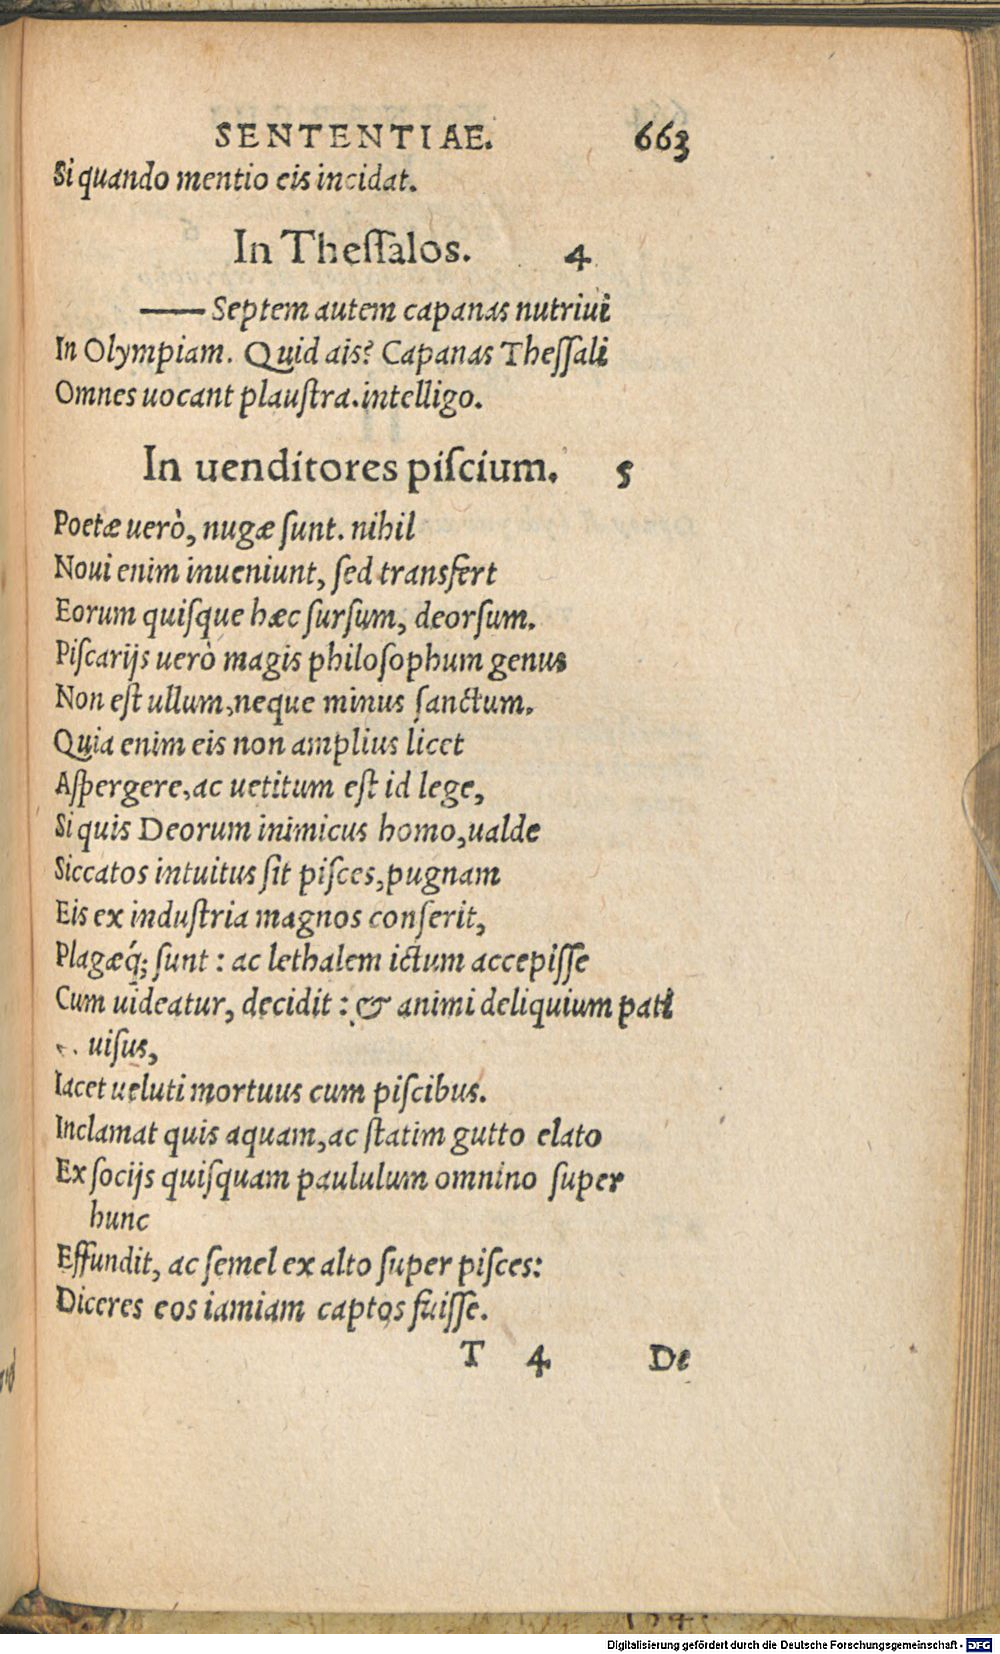 SENTENTIAE. 663
Si quando mentio eis incidat.
In Theſſalos. 4
—— Septem autem capanas nutriui
In Olympiam. Quid ais? Capanas Theſſali
Omnes uocant plauſtra. intelligo.
In uenditores piſcium. 5
Poetæ uerò, nugæ ſunt. nihil
Noui enim inueniunt, ſed transfert
Eorum quiſque hæc ſurſum, deorſum.
Piſcarijs uerò magis philoſophum genus
Non eſt ullum, neque minus ſanctum.
Quia enim eis non amplius licet
Aſpergere, ac uetitum eſt id lege,
Si quis Deorum inimicus homo, ualde
Siccatos intuitus ſit piſces, pugnam
Eis ex induſtria magnos conſerit,
Plagæq́; ſunt : ac lethalem ictum accepiſſe
Cum uideatur, decidit : & animi deliquium pati
uiſus,
Iacet ueluti mortuus cum piſcibus.
Inclamat quis aquam, ac ſtatim gutto elato
Ex ſocijs quiſquam paululum omnino ſuper
hunc
Effundit, ac ſemel ex alto ſuper piſces:
Diceres eos iamiam captos fuiſſe.
T 4 De
Digitalisierung gefördert durch die Deutsche Forschungsgemeinschaft - DFG